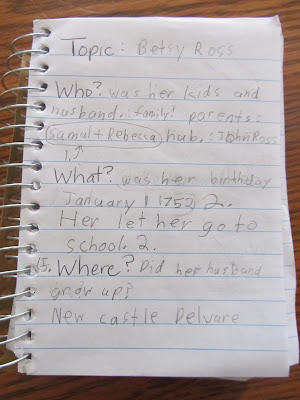 Topic: Betsy Ross
Who? was her kids and
husband.: family? parents:
Samul + Rebecca hub.: John Ross
1.
What? was her birthday
January 1 1752 2.
Her let her go to
school. 2.
5. Where? Did her husband
grow up?
New castle Delvare